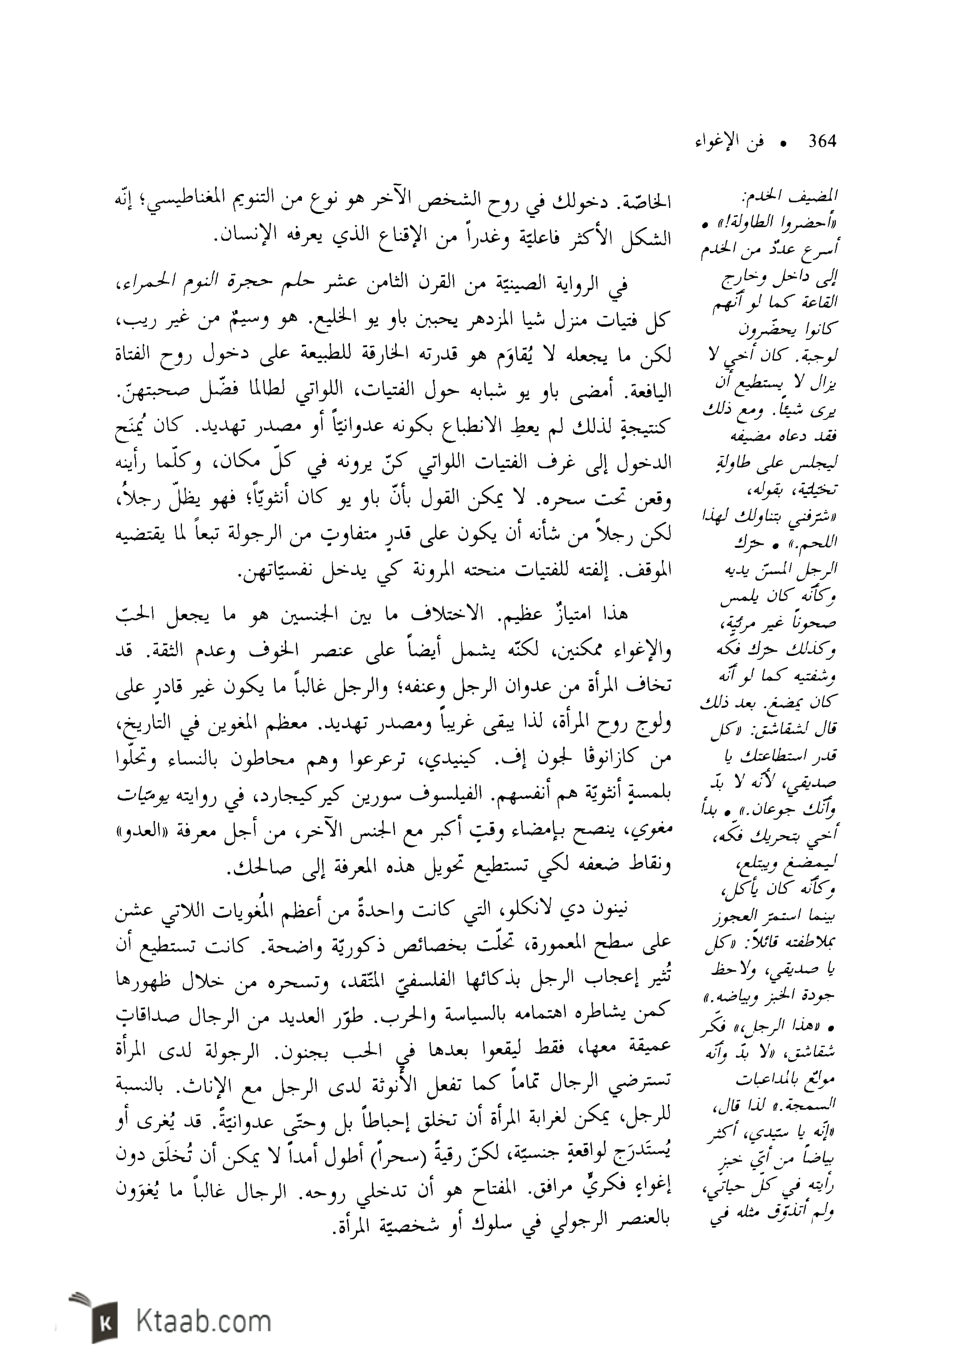 364 • فن الإغواء
المضيف الخدم:
«أحضروا الطاولة!» •
أسرع عددٌ من الخدم
إلى داخل وخارج
القاعة كما لو أنّهم
كانوا يحضّرون
لوجبة. كان أخي لا
يزال لا يستطيع أن
يرى شيئاً. ومع ذلك
فقد دعاه مضيفه
ليجلس على طاولةٍ
تخيّليّة، بقوله،
«شرّفني بتناولك لهذا
اللحم.» • حرّك
الرجل المسنّ يديه
وكأنّه كان يلمس
صحوناً غير مرئيّة،
وكذلك حرّك فكّه
وشفتيه كما لو أنّه
كان يمضغ. بعد ذلك
قال لشقاشق: «كل
قدر استطاعتك يا
صديقي، لأنّه لا بدّ
وأنّك جوعان.» • بدأ
أخي بتحريك فكّه،
ليمضغ ويبتلع،
وكأنّه كان يأكل،
بينما استمرّ العجوز
بملاطفته قائلاً: «كل
يا صديقي، ولاحظ
جودة الخبز وبياضه.»
• «هذا الرجل،» فكّر
شقاشق، «لا بدّ وأنّه
مولعٌ بالمداعبات
السمجة.» لذا قال،
«إنّه يا سيّدي، أكثر
بياضاً من أيّ خبزٍ
رأيته في كلّ حياتي،
ولم أتذوّق مثله في
الخاصّة. دخولك في روح الشخص الآخر هو نوع من التنويم المغناطيسي؛ إنّه
الشكل الأكثر فاعليّة وغدراً من الإقناع الذي يعرفه الإنسان.
في الرواية الصينيّة من القرن الثامن عشر حلم حجرة النوم الحمراء،
كل فتيات منزل شيا المزدهر يحببن باو يو الخليع. هو وسيمٌ من غير ريب،
لكن ما يجعله لا يُقاوَم هو قدرته الخارقة للطبيعة على دخول روح الفتاة
اليافعة. أمضى باو يو شبابه حول الفتيات، اللواتي لطالما فضّل صحبتهنّ.
كنتيجةٍ لذلك لم يعطِ الانطباع بكونه عدوانيّاً أو مصدر تهديد. كان يُمنَح
الدخول إلى غرف الفتيات اللواتي كنّ يرونه في كلّ مكان، وكلّما رأينه
وقعن تحت سحره. لا يمكن القول بأنّ باو يو كان أنثويّاً؛ فهو يظلّ رجلاً،
لكن رجلاً من شأنه أن يكون على قدرٍ متفاوتٍ من الرجولة تبعاً لما يقتضيه
الموقف. إلفته للفتيات منحته المرونة كي يدخل نفسيّاتهن.
هذا امتيازٌ عظيم. الاختلاف ما بين الجنسين هو ما يجعل الحبّ
والإغواء ممكنين، لكنّه يشمل أيضاً على عنصر الخوف وعدم الثقة. قد
تخاف المرأة من عدوان الرجل وعنفه؛ والرجل غالباً ما يكون غير قادرٍ على
ولوج روح المرأة، لذا يبقى غريباً ومصدر تهديد. معظم المغوين في التاريخ،
من كازانوڤا لجون إف. كينيدي، ترعرعوا وهم محاطون بالنساء وتحلّوا
بلمسةٍ أنثويّة هم أنفسهم. الفيلسوف سورين كيركيجارد، في روايته يوميّات
مغوي، ينصح بإمضاء وقتٍ أكبر مع الجنس الآخر، من أجل معرفة «العدو»
ونقاط ضعفه لكي تستطيع تحويل هذه المعرفة إلى صالحك.
نينون دي لانكلو، التي كانت واحدةً من أعظم المُغويات اللاتي عشن
على سطح المعمورة، تحلّت بخصائص ذكوريّة واضحة. كانت تستطيع أن
تُثير إعجاب الرجل بذكائها الفلسفيّ المتّقد، وتسحره من خلال ظهورها
كمن يشاطره اهتمامه بالسياسة والحرب. طوّر العديد من الرجال صداقاتٍ
عميقة معها، فقط ليقعوا بعدها في الحب بجنون. الرجولة لدى المرأة
تسترضي الرجال تماماً كما تفعل الأنوثة لدى الرجل مع الإناث. بالنسبة
للرجل، يمكن لغرابة المرأة أن تخلق إحباطاً بل وحتّى عدوانيّةً. قد يُغرى أو
يُستَدرَج لواقعةٍ جنسيّة، لكنّ رقيةً (سحراً) أطول أمداً لا يمكن أن تُخلَق دون
إغواءٍ فكريٍّ مرافق. المفتاح هو أن تدخلي روحه. الرجال غالباً ما يُغوَون
بالعنصر الرجولي في سلوك أو شخصيّة المرأة.
Ktaab.com